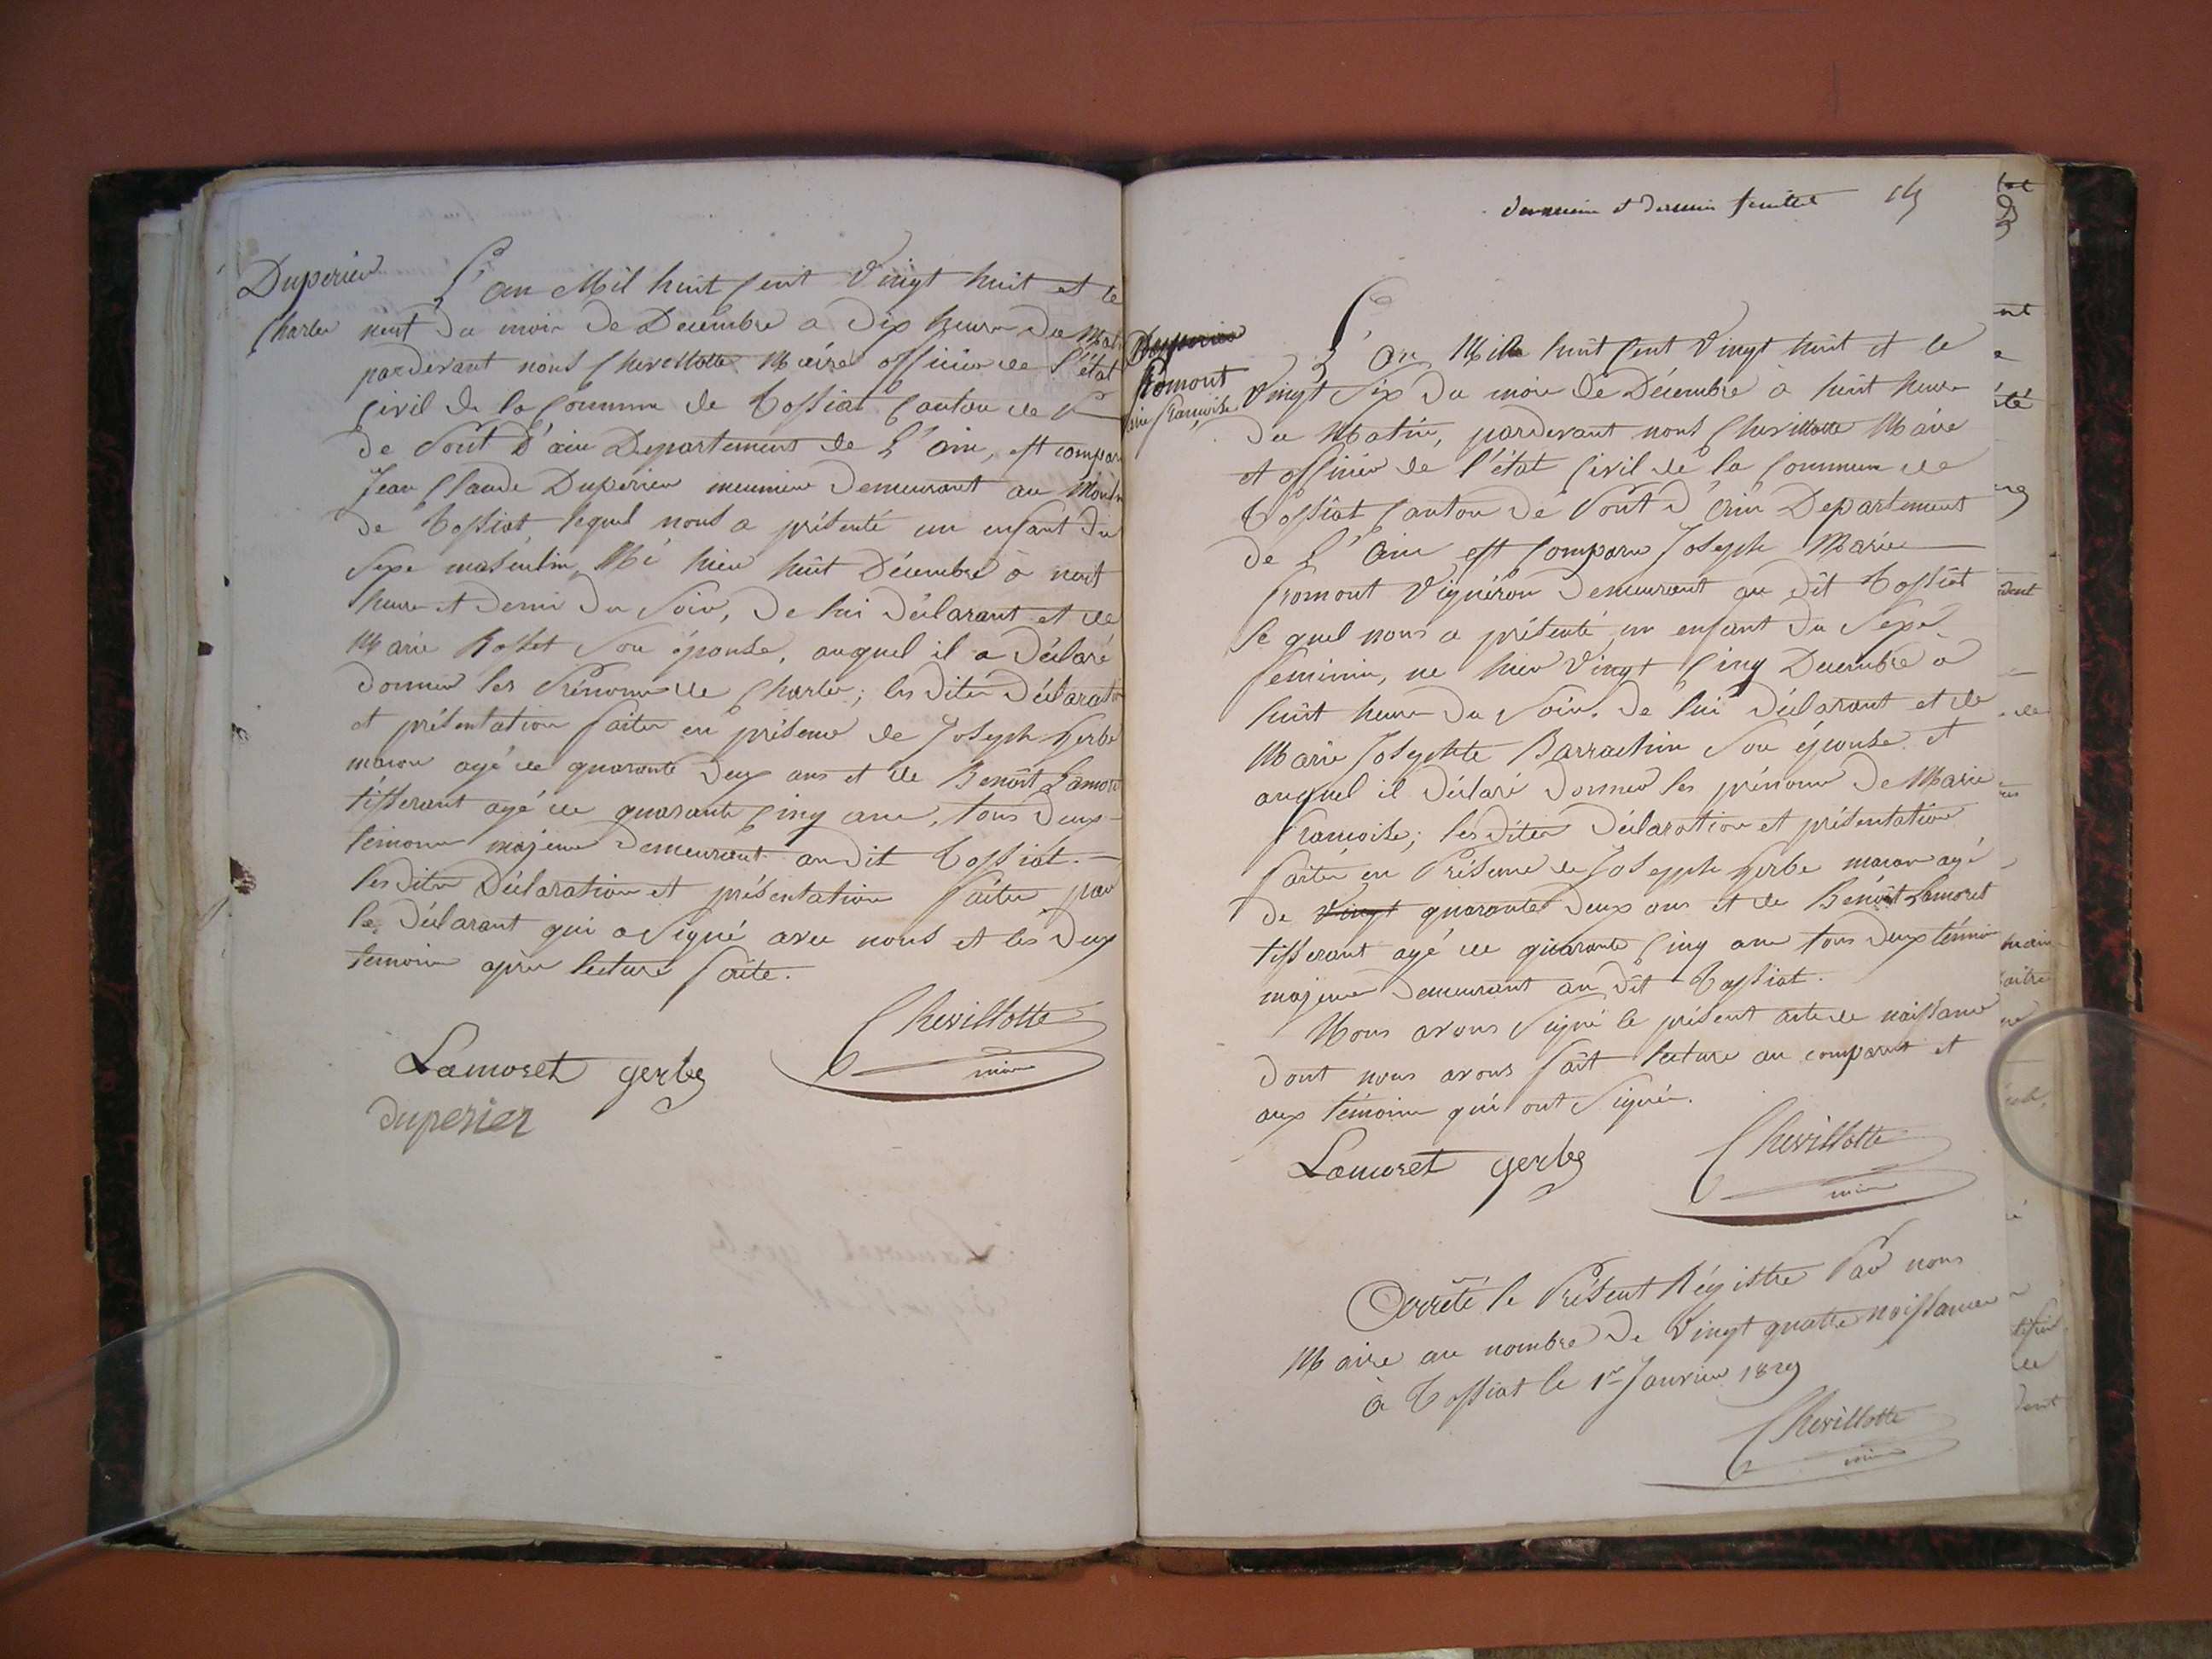 Duperier
Charles
L'an Mil huit Cent Vingt huit et le
neuf du mois de Decembre a dix heures du Mat
pardevant nous Chevillotte Maire officier de l'état
Civil de la Commune de Tossiat Canton de
de Pont D'ain Departement de L'ain, est compar
Jean Claude Duperier meunier demeurant au Moulin
de Tossiat lequel nous a présenté un enfant du
Sexe masculin, Né hier huit Décembre à neuf
heures et demi du Soir, de lui déclarant et de
Marie Rosset Son épouse, auquel il a déclaré
donner les Prénoms de Charles; les dites déclaration
et présentation faites en présence de Joseph Gerbe
macon agé de quarante deux ans et de Benoît Lamoret
tisserant agé de quarante Cinq ans, tous deux
temoins majeurs demeurant au dit Tossiat.
les dites Déclaration et présentation faites par
le déclarant qui a Signé avec nous et les deux
temoins après lecture faite.
Chevillotte
maire
Lamoret gerbe
duperier
et dernier feuillet 14
Duperier
Fromont
Françoise
L'an Mil huit Cent Vingt huit et le
Vingt Six du mois de Décembre à huit heures
du Matin, pardevant nous Chevillotte Maire
et officier de l'état Civil de la Commune de
Tossiat Canton de Pont d'Ain Departement
de L'Ain est Comparu Joseph Marie
Fromont Vigneron demeurant au dit Tossiat
le quel nous a présenté un enfant du Sexe
feminin, ne hier Vingt Cinq Decembre à
huit heures du Soir. de lui déclarant et de
Marie Josephte Barrachin Son épouse et
auquel il déclaré donner les prénoms de Marie
Francoise; les dites Déclaration et présentation
faites en Présence de Joseph Gerbe macon agé
de Vingt quarante deux ans et de Benoît Lamoret
tisserant agé de quarante Cinq ans tous deux témoin
majeurs demeurant au dit Tossiat.
Nous avons Signé le présent acte de naissance
dont nous avons fait lecture au comparant et
aux témoins qui ont Signés.
Lamoret gerbe
Chevillotte
maire
Arrêté le Présent Régistre Par nous
Maire au nombre de Vingt quatre naissances
à Tossiat le 1er Janvier 1829
Chevillotte
maire